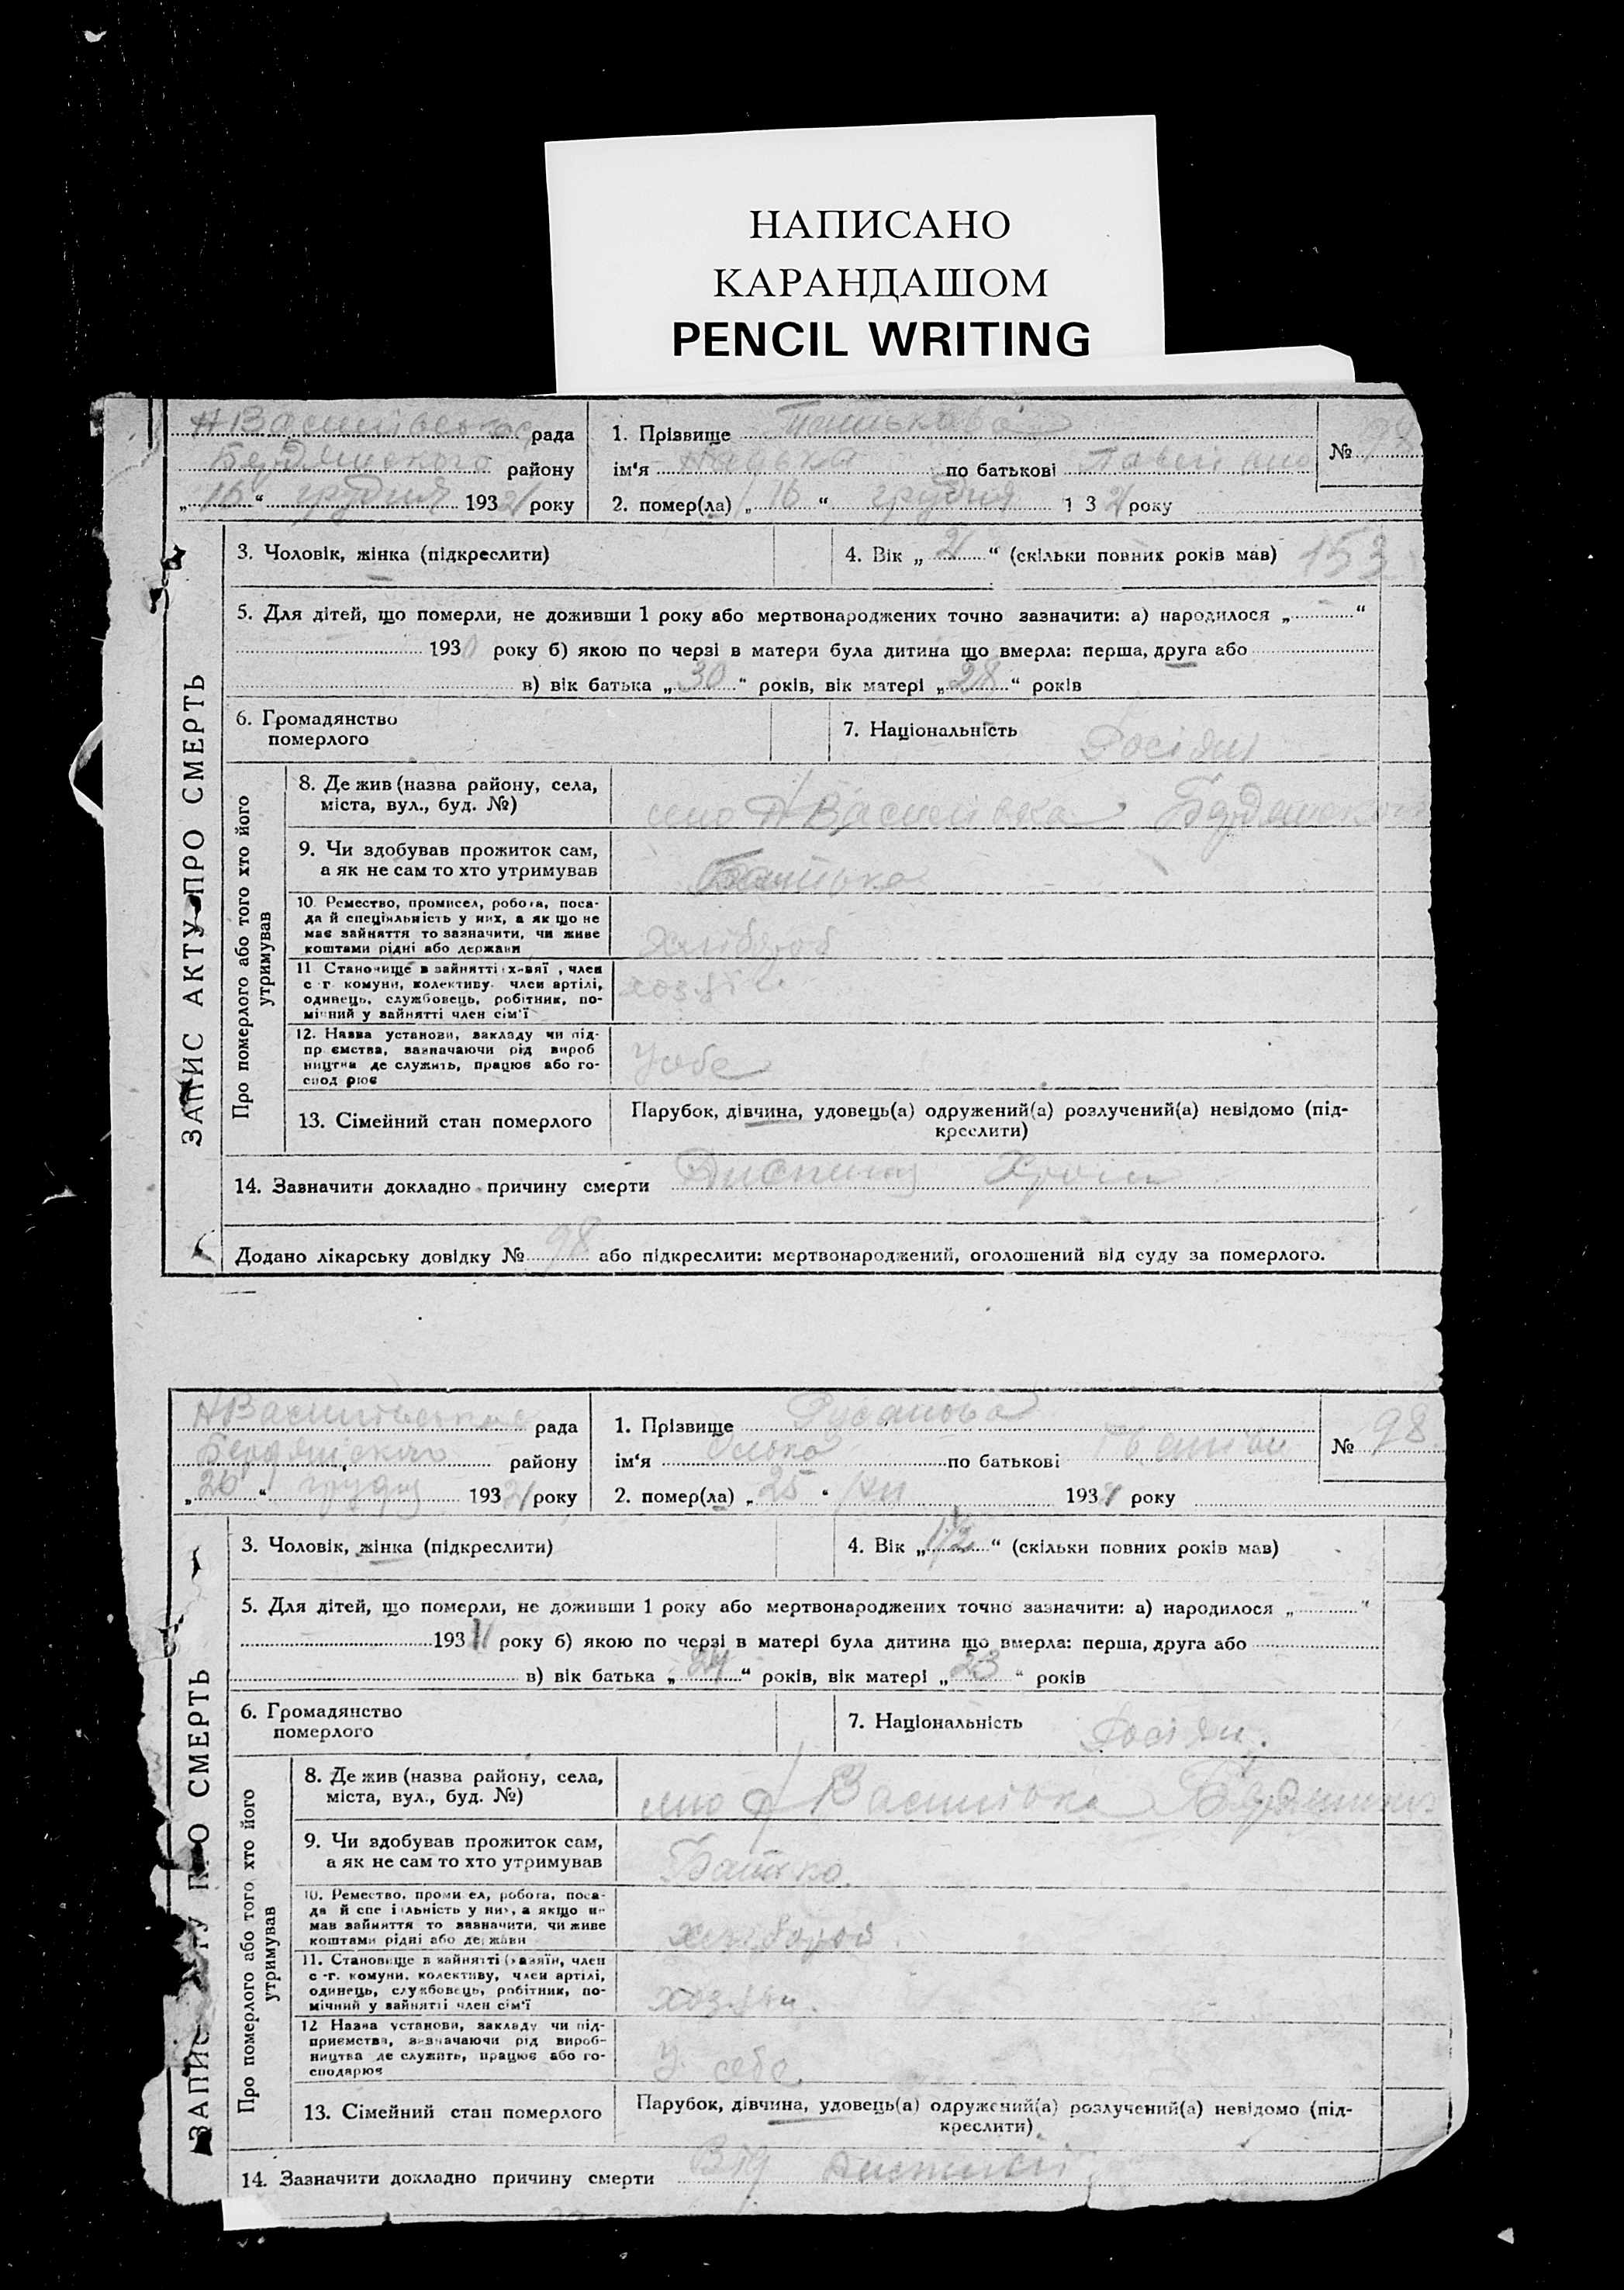 НАПИСАНО
КАРАНДАШОМ
PENCIL WRITING
рада
Бердянського району
„ 16 “ грудня 193 року
1. Прізвище
ім‘я по батькові
2. помер(ла) „ 16 “ грудня 1 3 року
№ 98
3. Чоловік, жінка (підкреслити)
4. Вік „ 2 “ (скільки повних років мав) 153
5. Для дітей, що померли, не доживши 1 року або мертвонароджених точно зазначити: а) народилося „ “
1930 року б) якою по черзі в матери була дитина що вмерла: перша, друга або
в) вік батька „ 30 “ років, вік матері „ 28 “ років
6. Громадянство
померлого
7. Національність Росіян
ЗАПИС АКТУ ПРО СМЕРТЬ
Про померлого або того хто його
утримував
8. Де жив (назва району, села,
міста, вул., буд. №)
Василівка
9. Чи здобував прожиток сам,
а як не сам то хто утримував
Батько
10. Ремество, промисел, робота, поса-
да й спеціяльність у них, а як що не
має зайняття то зазначити, чи живе
коштами рідні або держави
Хлібороб
11 Становище в зайнятті
член
с г. комуни, колективу. член артілі,
одинець, службовець, робітник, по-
мічний у зайнятті член сім‘ї
хозяїн.
12. Назва установи, закладу чи під-
пр ємства, зазначаючи рід вироб
ництва де служить, працює або го-
спод рює
У себе
13. Сімейний стан померлого
Парубок, дівчина, удовець(а) одружений(а) розлучений(а) невідомо (під-
креслити)
14. Зазначити докладно причину смерти
Додано лікарську довідку № 98 або підкреслити: мертвонароджений, оголошений від суду за померлого.
рада
Бердянського району
„ 26 “ 193 року
1. Прізвище Русанова
ім‘я по батькові
2. помер(ла) „ 25 “ 193 року
№ 98
3. Чоловік, жінка (підкреслити)
4. Вік „ 1½ “ (скільки повних років мав)
5. Для дітей, що померли, не доживши 1 року або мертвонароджених точно зазначити: а) народилося „ “
193 року б) якою по черзі в матері була дитина що вмерла: перша, друга або
в) вік батька „ 24 “ років, вік матері „ 23 “ років
6. Громадянство
померлого
7. Національність Росіян.
ЗАПИС ПРО СМЕРТЬ
Про померлого або того хто його
утримував
8. Де жив (назва району, села,
міста, вул., буд. №)
Василівка
9. Чи здобував прожиток сам,
а як не сам то хто утримував
Батько.
10. Ремество, роботa, поса-
да й у них, а якщо не
мав зайняття то зазначити, чи живе
коштами рідні або держави
хлібороб.
11. Становище в зайнятті член
с -г. комуни, колективу, член артілі,
одинець, службовець, робітник, по-
мічний у зайнятті член сім‘ї
хозяїн.
12 Назва установи, закладу чи під-
приємства, зазначаючи рід вироб-
ництва де служить, працює або го-
сподарює
У себе.
13. Сімейний стан померлого
Парубок, дівчина, удовець(а) одружений(а) розлучений(а) невідомо (під-
креслити).
14. Зазначити докладно причину смерти Від